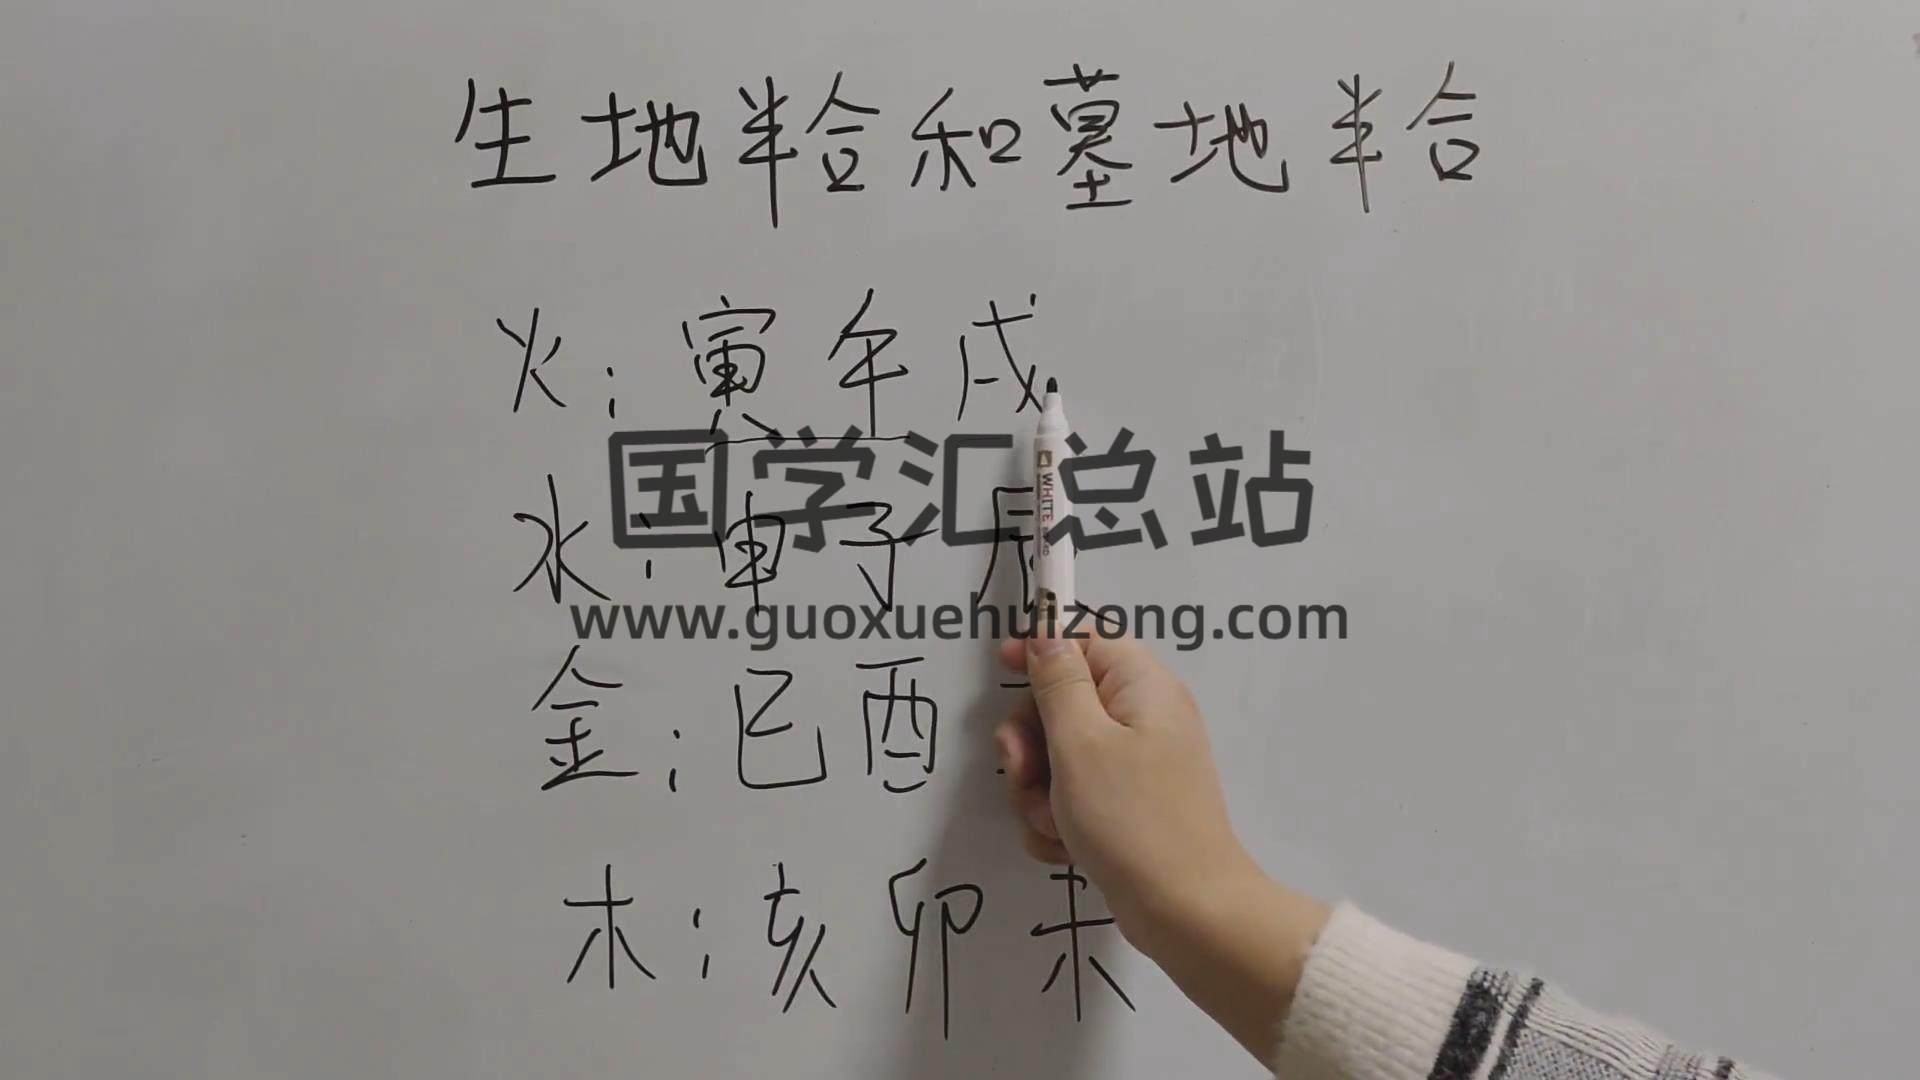 生地半合和墓地半合
火：寅午戌
国学汇总站
水：申子辰
www.guoxuehuizong.com
金：巳酉
木：亥卯未
WHITE